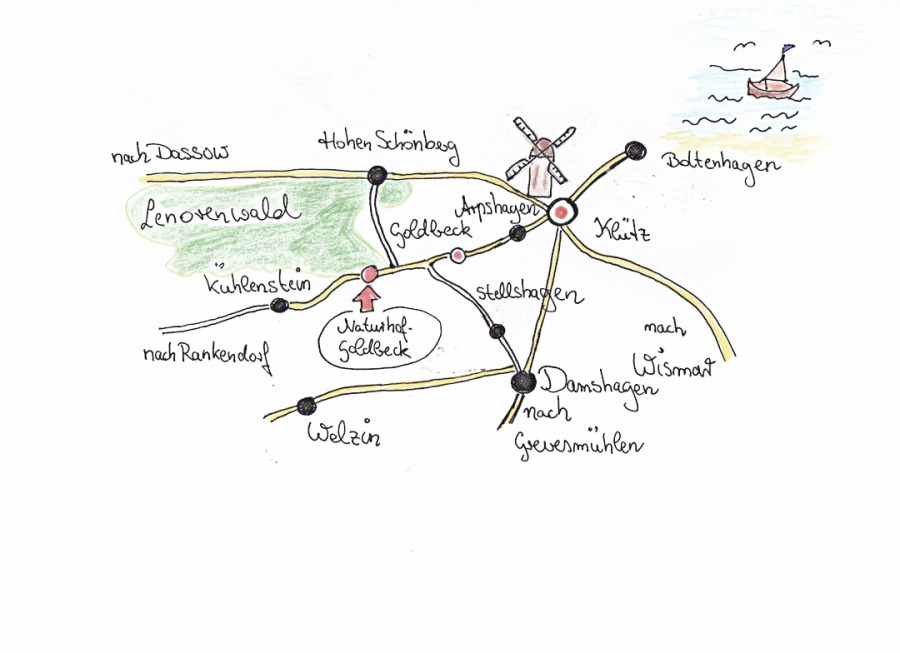 nach Dassow
Hohen Schönberg
Boltenhagen
Lenorenwald
Arpshagen
Goldbeck
Klütz
Kühlenstein
Stellshagen
Naturhof-
Goldbeck
nach
Wismar
nach Rankendorf
Damshagen
nach
Grevesmühlen
Welzin